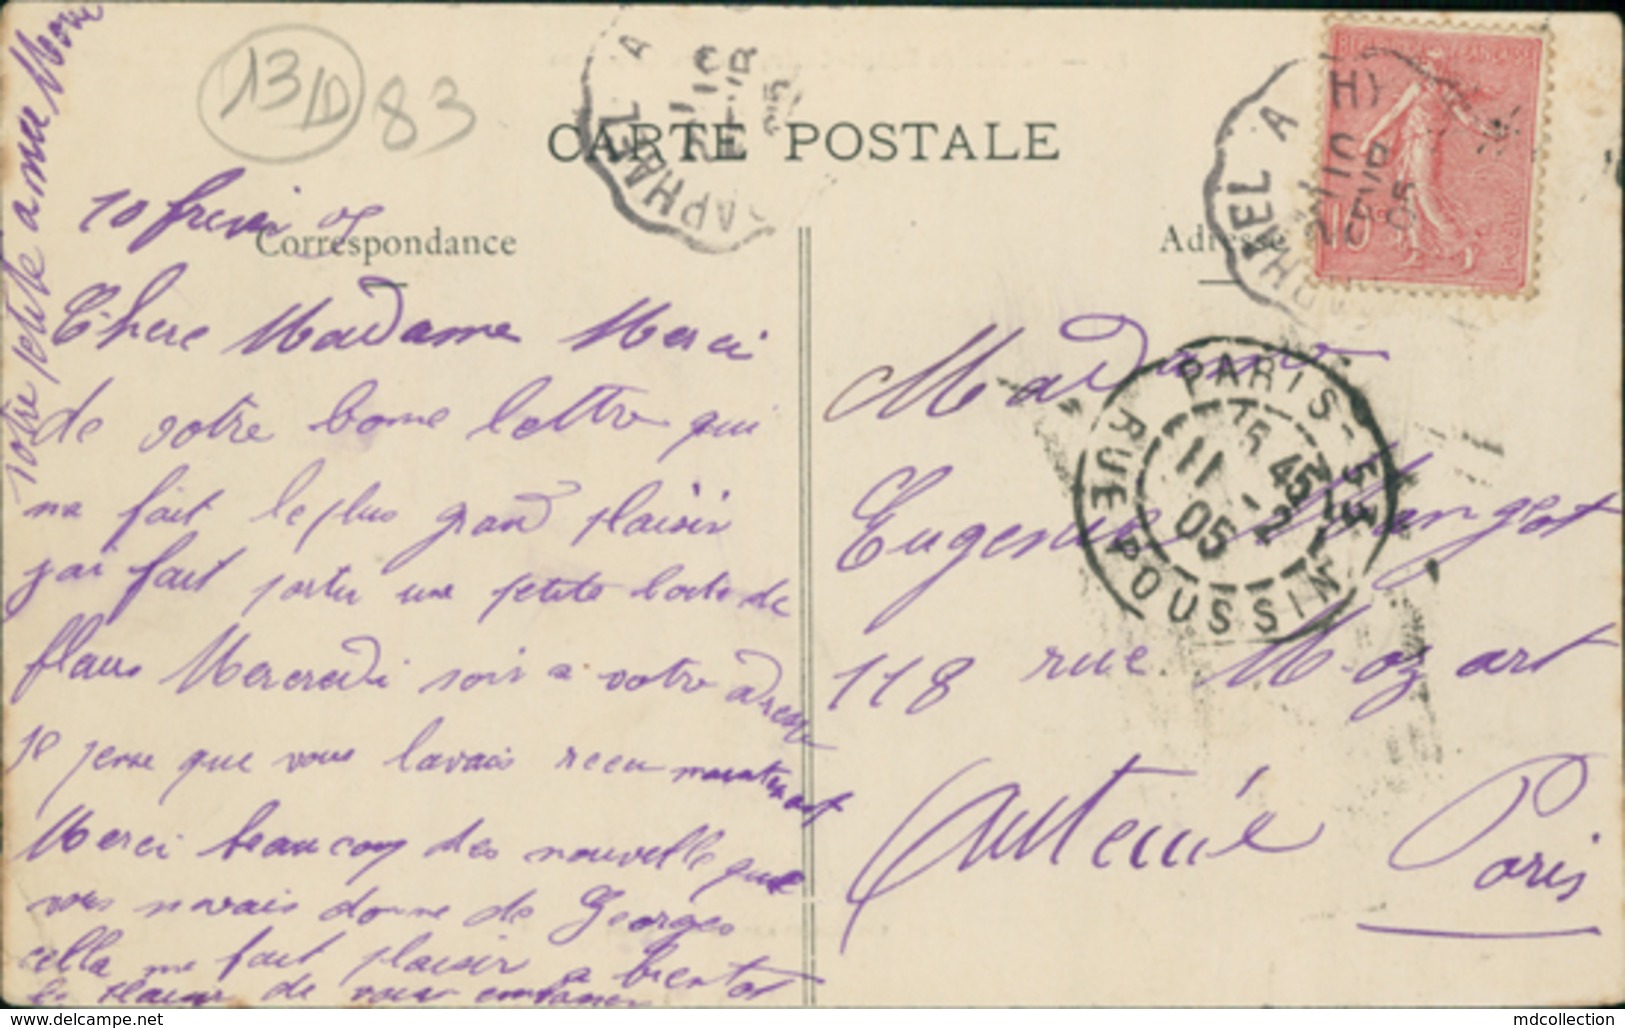 13 D 83
CARTE POSTALE
Correspondance
Adresse
10 fevrier 05
Chere Madame Merci
de votre bonne lettre qui
ma fait le plus grand plaisir
jai fait partir une petite boite de
fleurs Mercredi soir a votre adresse
je pense que vous lavais receu maintenant
Merci beaucoup des nouvelle que
vous mavais donne de Georges
cella me fait plaisir a bientot
le plaisir de vous embrasser
votre petite amie Marie
Madame
Eugenie Mangot
118 rue Mozart
Auteuil
Paris
RAPHAEL A
10
FEVR
05
RAPHAEL A
H)
10
FEVR
05
PARIS-53
RUE POUSSIN
15 45
11 -2
05
10
http://www.delcampe.net
mdcollection